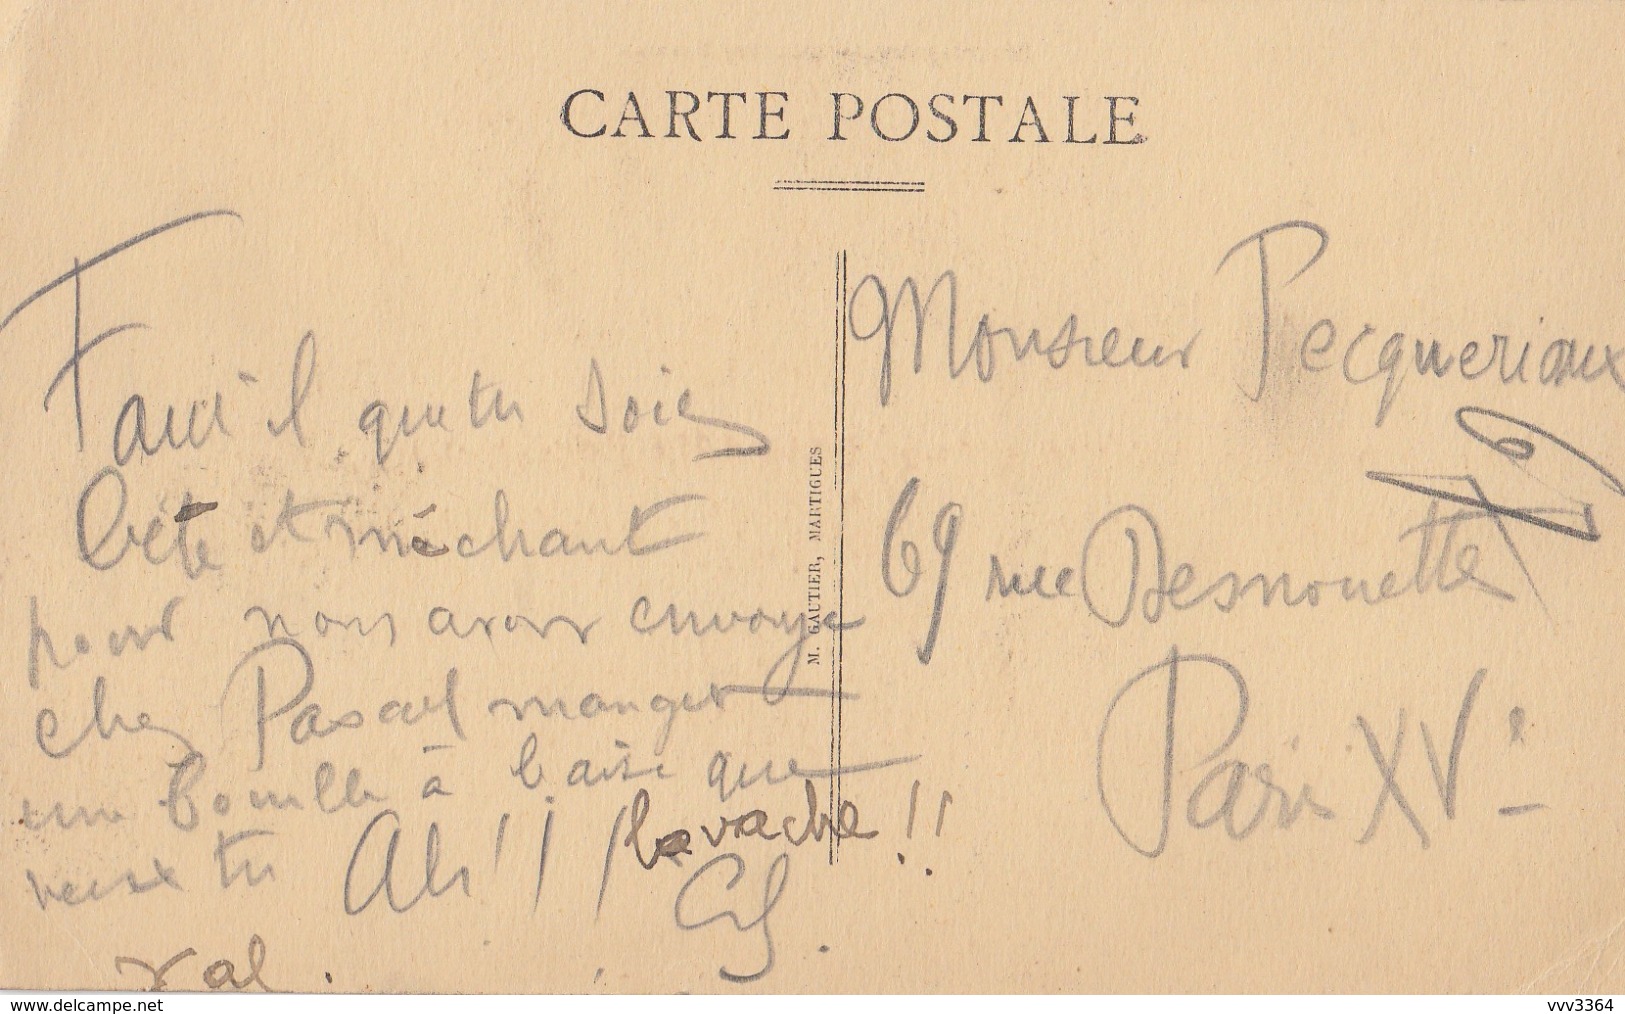 CARTE POSTALE
Faut il que tu sois
bête et méchant
pour nous avoir envoyé
chez Pascal manger
une bouille à baise que
veux tu Ah!! la vache!!
val.
M. GAUTIER, MARTIGUES
Monsieur Pecqueriaux
69 rue Desnouette
Paris XVe
www.delcampe.net
vvv3364